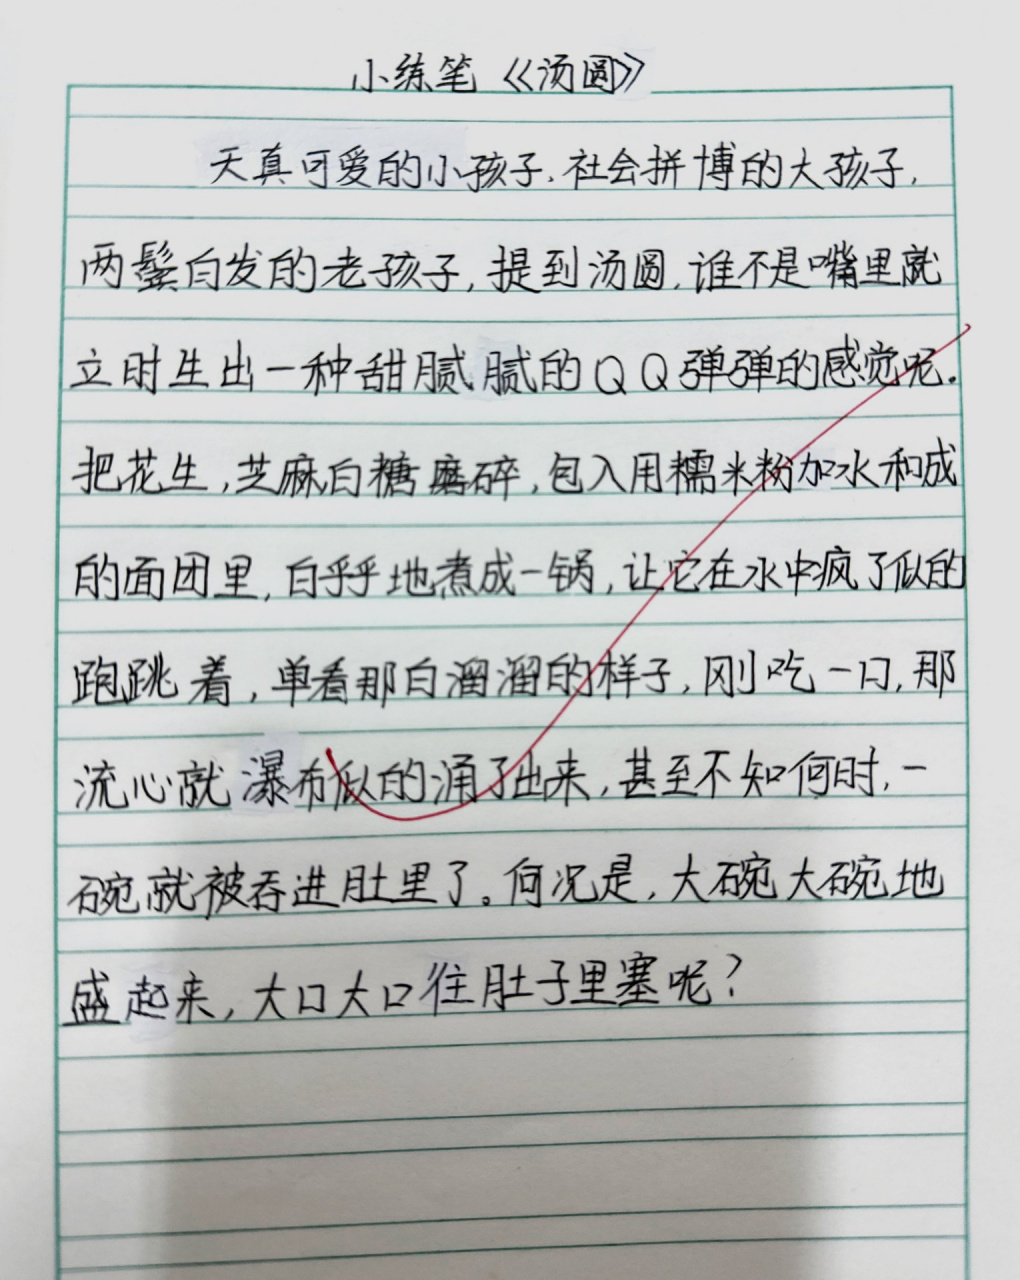 小练笔《汤圆》
天真可爱的小孩子,社会拼博的大孩子,
两鬓白发的老孩子,提到汤圆,谁不是嘴里就
立时生出一种甜腻腻的QQ弹弹的感觉呢.
把花生,芝麻白糖磨碎,包入用糯米粉加水和成
的面团里,白乎乎地煮成一锅,让它在水中疯了似的
跑跳着,单看那白溜溜的样子,刚吃一口,那
流心就瀑布似的涌了出来,甚至不知何时,一
碗就被吞进肚里了。何况是,大碗大碗地
盛起来,大口大口往肚子里塞呢?